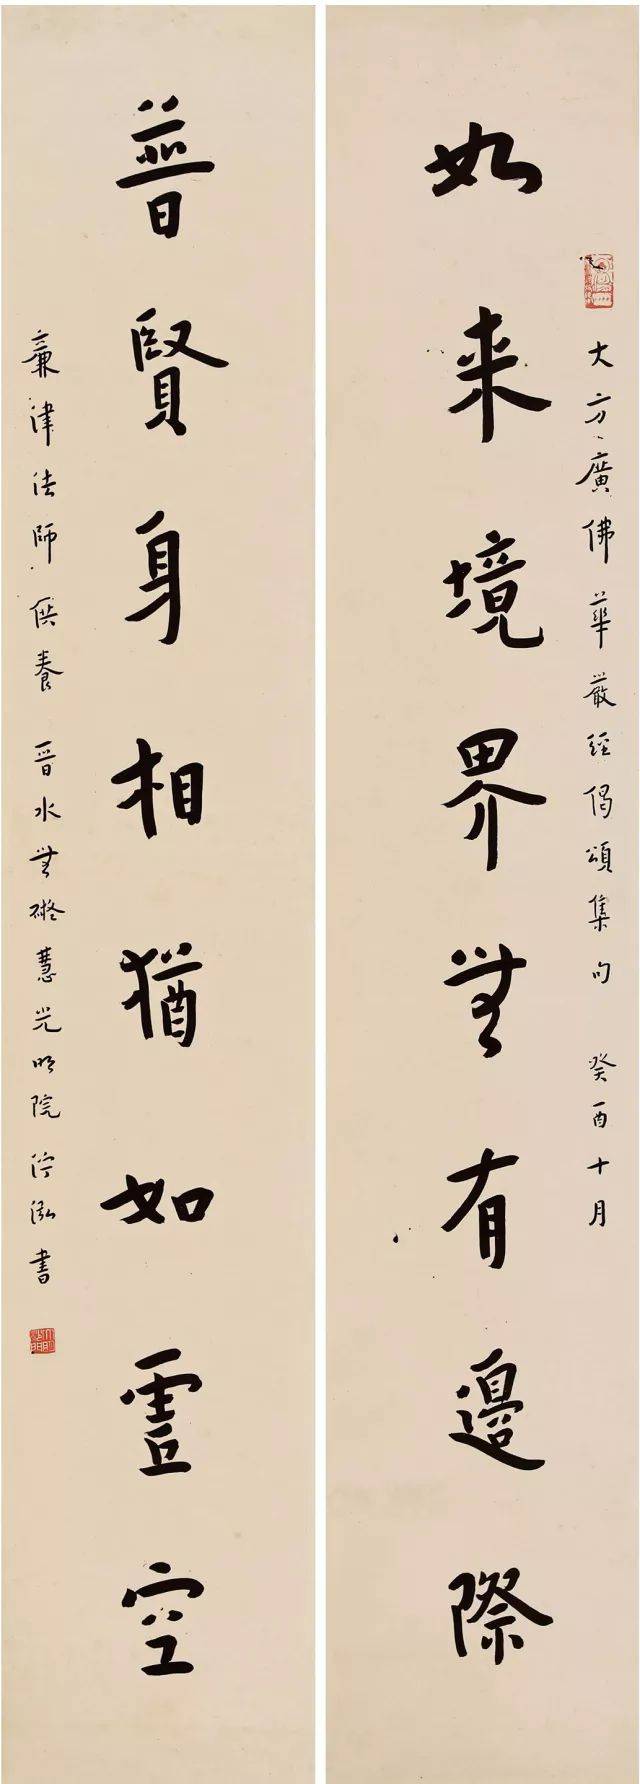 大方廣佛華嚴經偈頌集句 癸酉十月
如来境界無有邊際
普賢身相猶如虛空
廉津法師供養 晉水無礙慧光明院 泓書